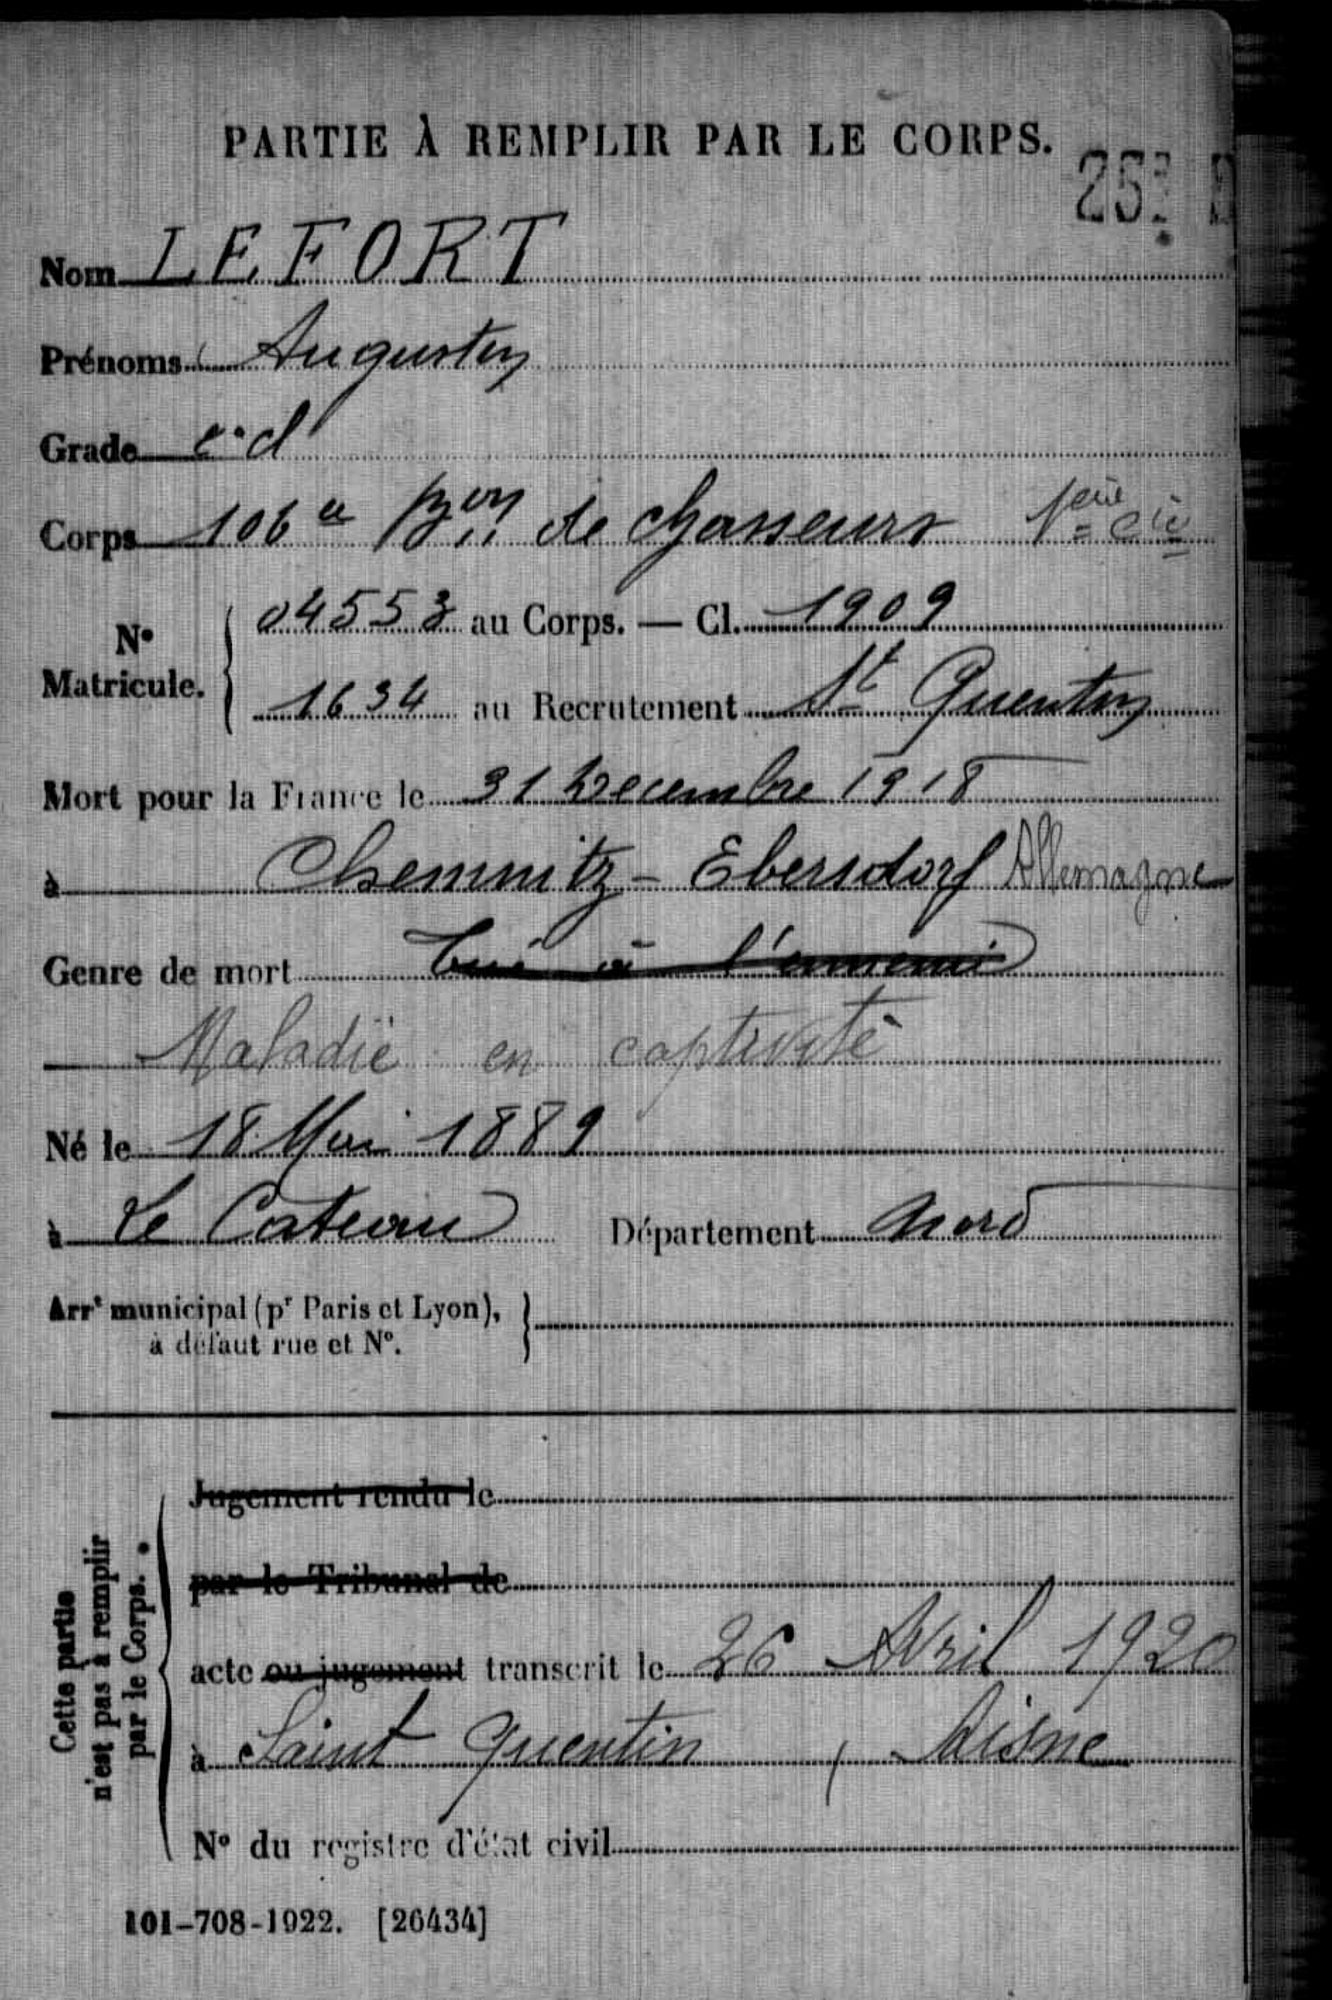 PARTIE À REMPLIR PAR LE CORPS.
25
Nom LEFORT
Prénoms Augustin
Grade
Corps 106e Bon de chasseurs 1ère Cie
N° Matricule. { 04553 au Corps. — Cl. 1909
1634 au Recrutement St Quentin
Mort pour la France le 31 Décembre 1918
à Chemnitz - Ebersdorf Allemagne
Genre de mort tué à l'ennemi
Maladie en captivité
Né le 18 Mai 1889
à Le Cateau Département Nord
Arrt municipal (pr Paris et Lyon),
à défaut rue et N°.
Cette partie n'est pas à remplir par le Corps.
Jugement rendu le
par le Tribunal de
acte ou jugement transcrit le 26 Avril 1920
à Saint Quentin, Aisne
N° du registre d'état civil
101-708-1922. [26434]